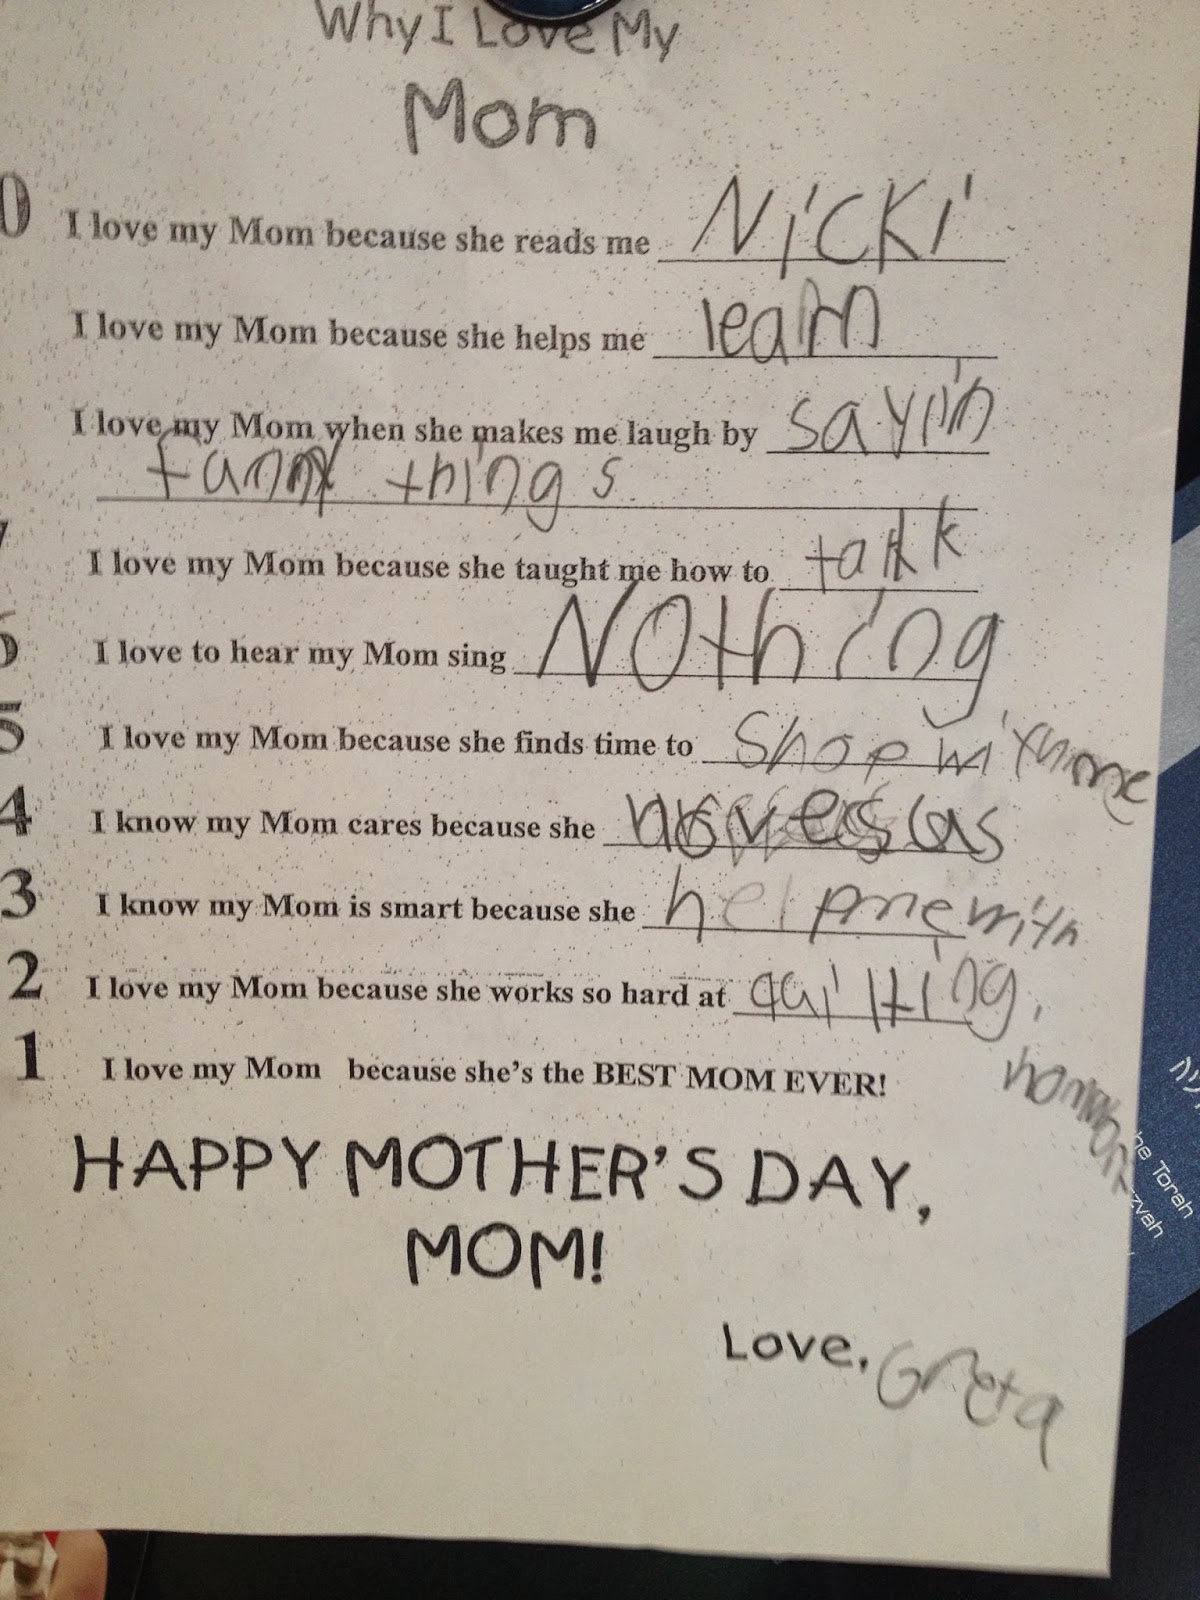 Why I Love My
Mom
0 I love my Mom because she reads me Nicki
I love my Mom because she helps me learn
I love my Mom when she makes me laugh by sayin
fanny things
I love my Mom because she taught me how to talk
6 I love to hear my Mom sing Nothing
5 I love my Mom because she finds time to Shop with me
4 I know my Mom cares because she
3 I know my Mom is smart because she help me with
homwork
2 I love my Mom because she works so hard at
1 I love my Mom because she's the BEST MOM EVER!
HAPPY MOTHER'S DAY,
MOM!
Love, Greta
he Torah
zvah